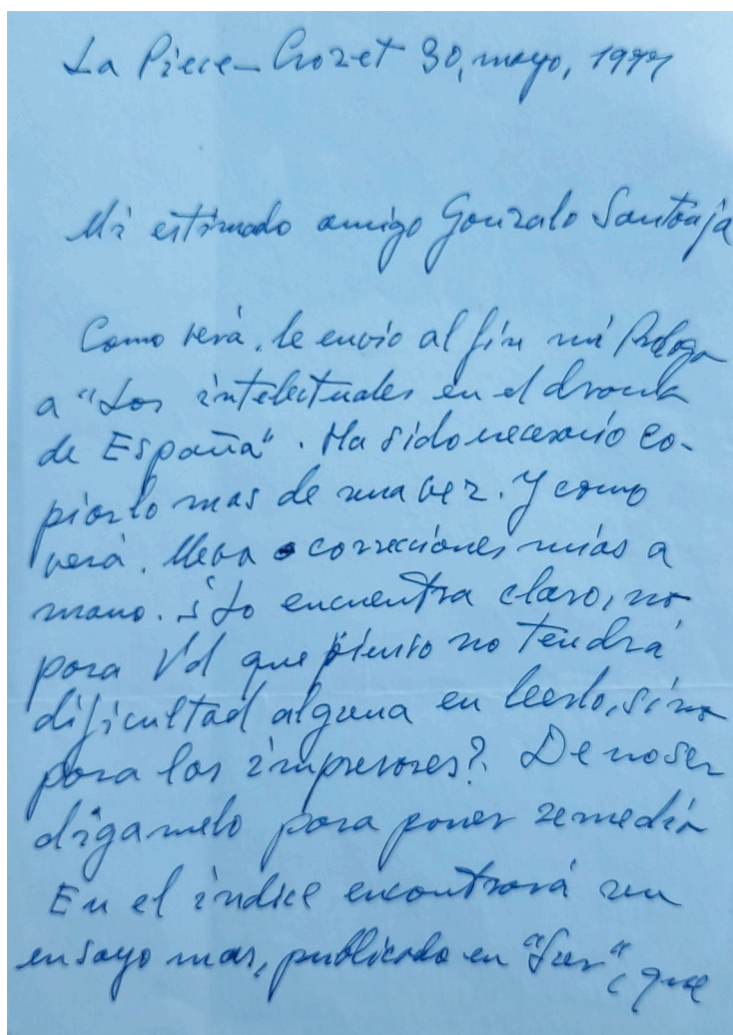 La Piece - Crozet 30, mayo, 1977
Mi estimado amigo Gonzalo Santonja
Como verá, le envío al fin mi Prólogo
a "Los intelectuales en el drama
de España". Ha sido necesario co-
piarlo mas de una vez. Y como
verá. lleva correcciones mias a
mano. ¿Lo encuentra claro, no
para Vd que pienso no tendrá
dificultad alguna en leerlo, sino
para los impresores? De no ser
dígamelo para poner remedio
En el índice encontrará un
ensayo mas, publicado en "Sur", que